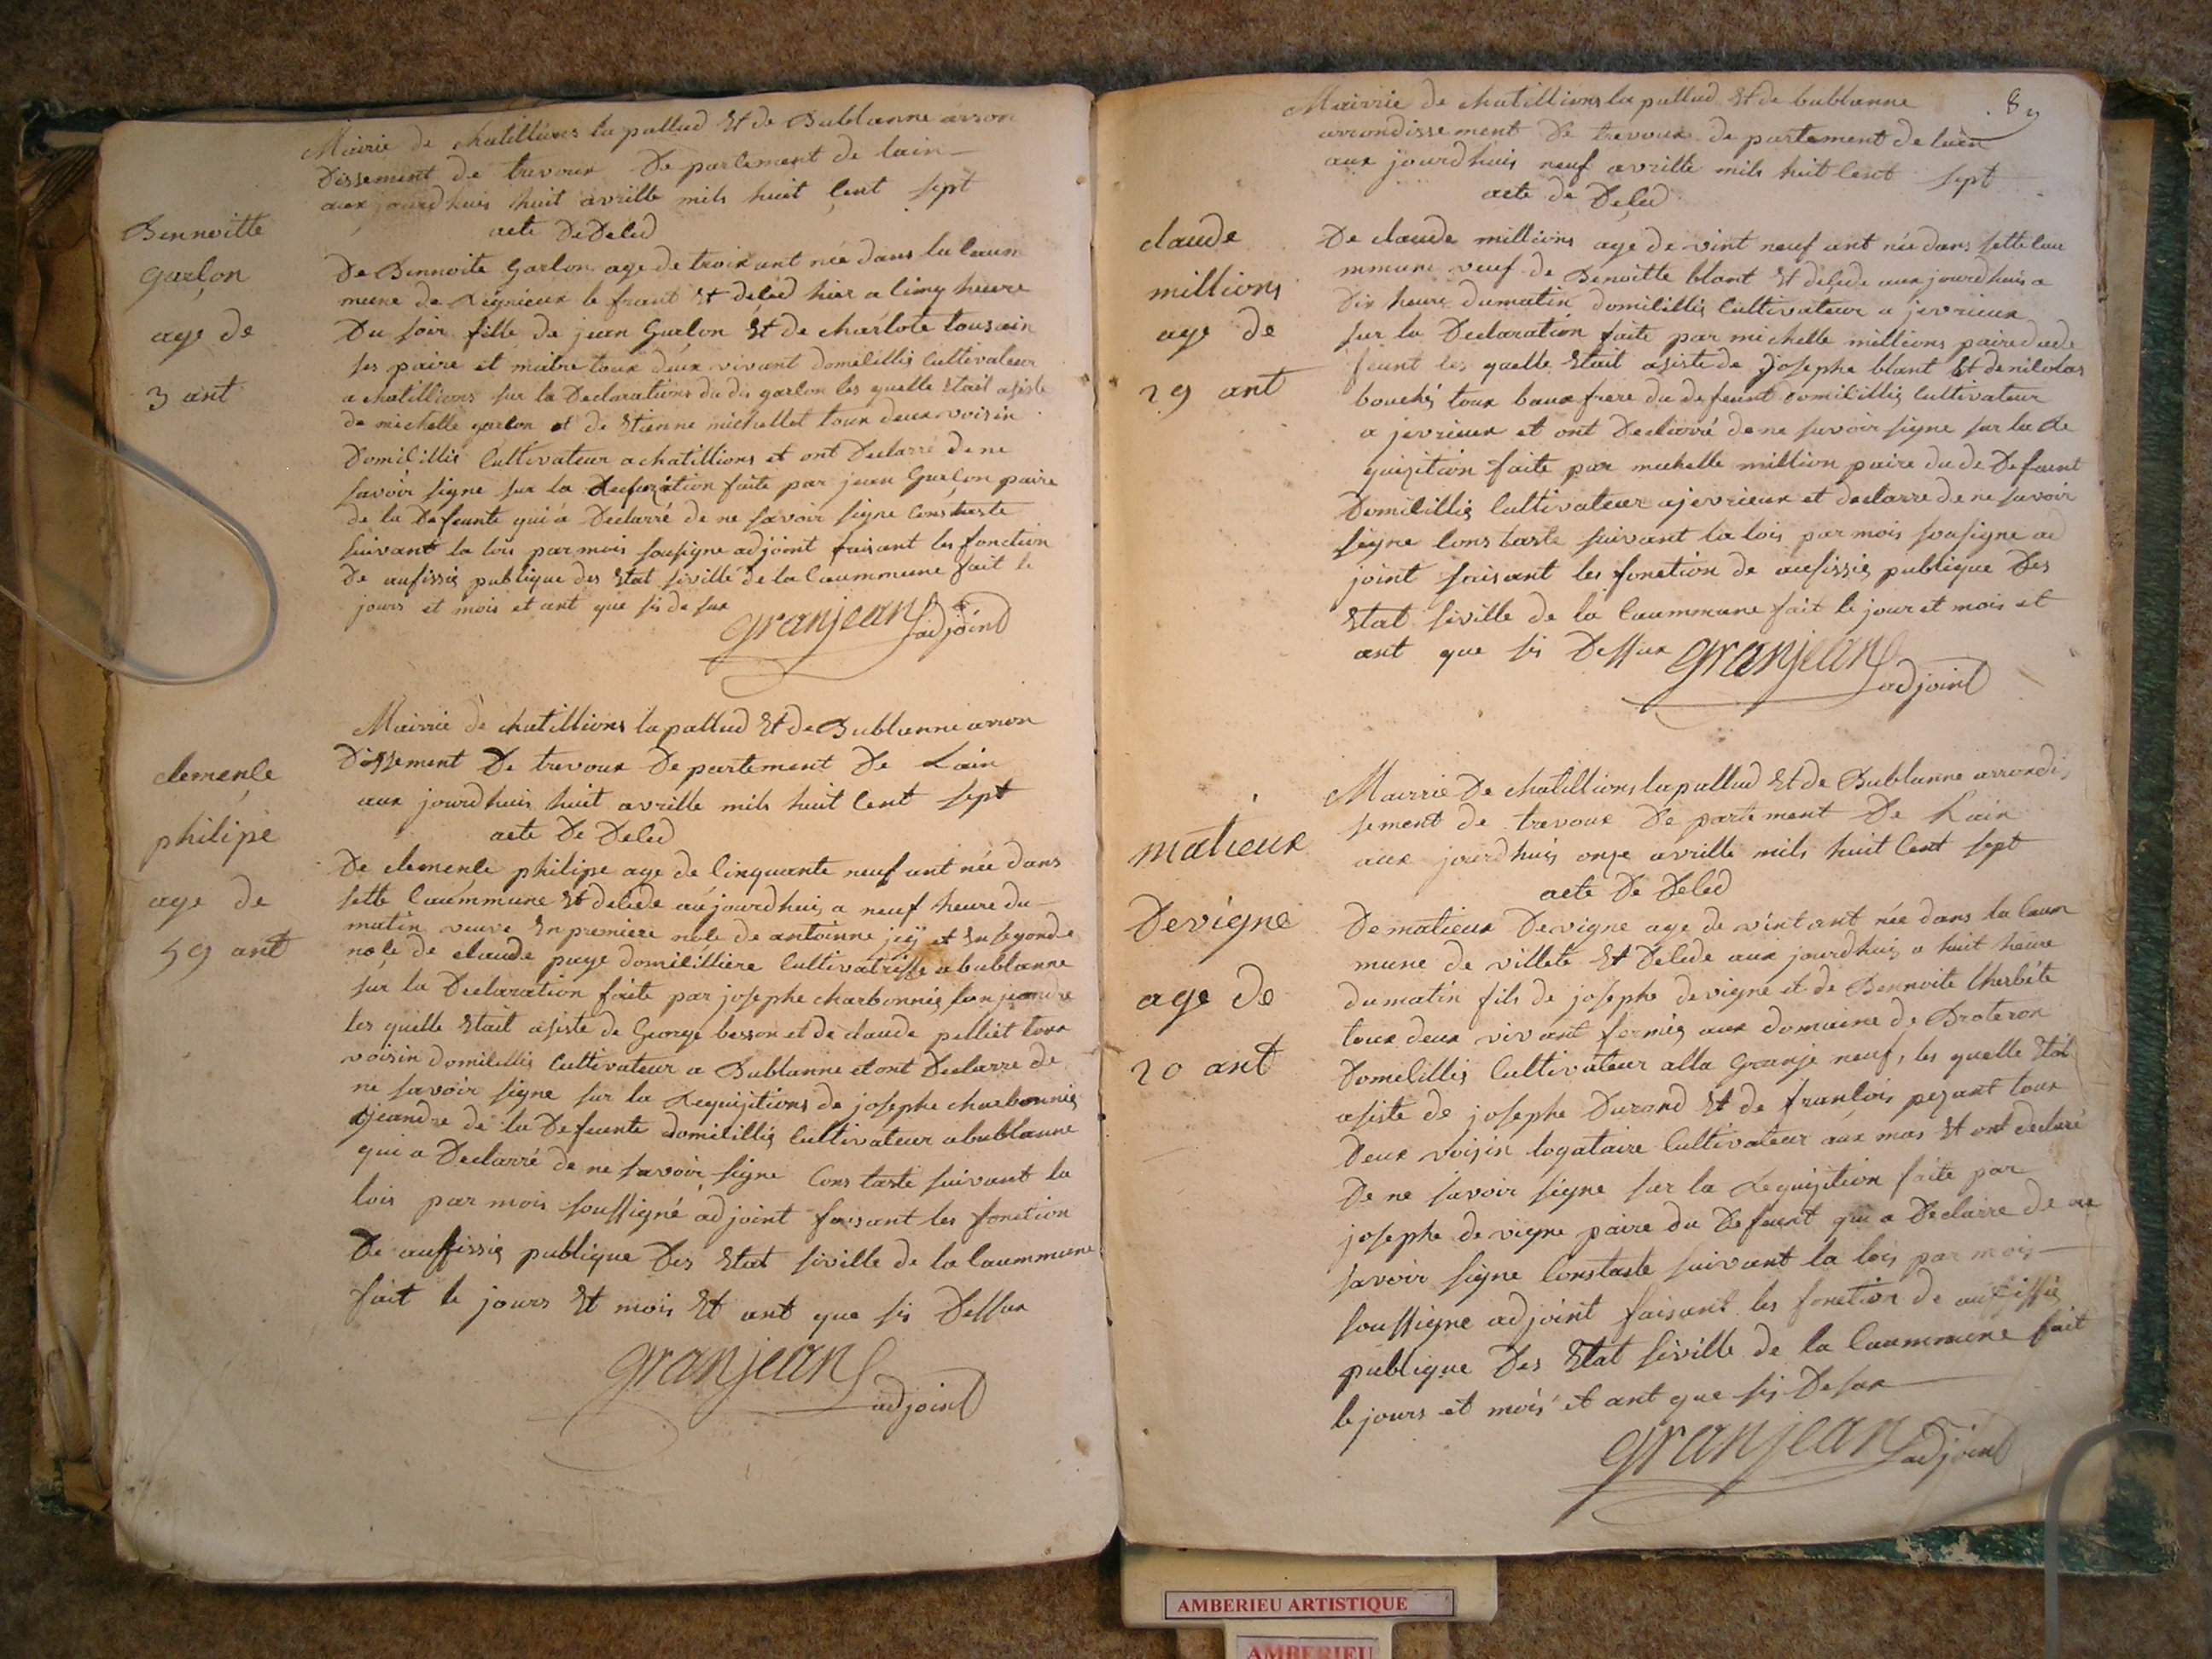 Mairie de chatillions la pallud Et de Bublanne arron
Dissement de trevoux De partement de lain
aux jourdhuis huit avrille mils huit Cent sept
acte De Deled
Bennoitte
garlon
age de
3 ant
De Bennoite garlon age de troix ant née dans la Caum
mune de Rignieux le frant Et deled hier a Cinq heure
Du soir fille de jean Garlon Et de charlote tousain
ses paire et maitre toux deux vivant domicillis Cultivateur
a chatillions sur la Declarations du dis garlon les quelle Etait asiste
de michelle garlon et de Etienne michellet toux deux voisin
Domicillis Cultivateur a chatillions et ont Declarré de ne
savoir signe sur la Requisition faite par jean Garlon paire
de la Defeunte qui a Declarré de ne savoir signe Constaste
suivant la lois par mois sousigne adjoint faisant les fonction
De aufissis publique des Etat siville de la Caummune fait le
jours et mois et ant que sis de sux
granjean adjoint
Mairrie de chatillions la pallud Et de Bublanne arron
Dissement De trevoux De partement De Lain
aux jourdhuis huit avrille mils huit Cent sept
acte De Deled
clemençe
philipe
age de
59 ant
De clemençe philipe age de Cinquante neuf ant née dans
sette Caummune Et delede aujourdhuis a neuf heure du
matin veuve En premiere noçe de antoinne jeÿ et En segonde
noçe de claude page domicilliere Cultivatrisse a bublanne
sur la Declaration faite par josephe charbonnis son jeandre
les quelle Etait asiste de George besson et de claude pelliet toux
voisin domicillis Cultivateur a Bublanne et ont Declarre de
ne savoir signe sur la Requisitions de josephe charbonnis
jeandre de la Defeunte domicillis Cultivateur a bublanne
qui a Declarré de ne savoir signe Constaste suivant la
lois par mois soussigné adjoint faisant les fonction
De auffissis publique Des Etat siville de la Caummune
fait le jours Et mois Et ant que sis Dessux
granjean
adjoint
Mairrie de chatillions la pallud Et de bublanne
89
arrondissement De trevoux de partement de lain
aux jourdhuis neuf avrille mils huit Cent sept
acte de Deled
claude
millions
age de
29 ant
De claude millions age de vint neuf ant née dans sette Cau
mmune veuf de Benoitte blant Et delede aux jourdhuis a
Dix heure du matin domicillis Cultivateur a jevrieux
sur la Declaration faite par michelle millions paire du de
feunt les quelle Etait asiste de josephe blant Et de nicolas
bouchés toux baux frere du defeunt domicillis Cultivateur
a jevrieux et ont Declarré de ne savoir signe sur la Re
quisition faite par michelle million paire du de Defeunt
Domicillis Cultivateur a jevrieux et declarre de ne savoir
signe Constaste suivant la lois par mois sousigne ad
joint faisant les fonction de aufissis publique Des
Etat siville de la Caummune fait le jour et mois et
ant que sis Dessux granjean
adjoint
Mairrie De chatillions la pallud Et de Bublanne arrondis
sement de trevoux De partement De Lain
aux jourdhuis onze avrille mils huit Cent sept
acte De Deled
matieux
Devigne
age de
20 ant
De matieux Devigne age de vint ant née dans la Caum
mune de villete Et Delede aux jourdhuis a huit heure
du matin fils de josephe devigne et de Bennoite Cherbéte
toux deux vivant fermis aux domaine de Broteron
Domicillis Cultivateur alla Granje neuf, les quelle Etoit
asiste de josephe Durand Et de françois pezant toux
Deux voisin logataire Cultivateur aux mas Et ont declaré
De ne savoir signe sur la Requisition faite par
josephe de vigne paire du Defeunt qui a Declarre de ne
savoir signe Constaste suivant la lois par mois
soussigne adjoint faisant les fonction de aufissis
publique Des Etat siville de la Caummune fait
le jours et mois et ant que sis Desux
granjean adjoint
AMBERIEU ARTISTIQUE
AMBERIEU